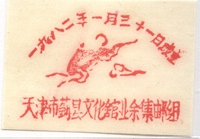 一九八二年一月三十一日成立
天津市蓟县文化馆业余集邮组